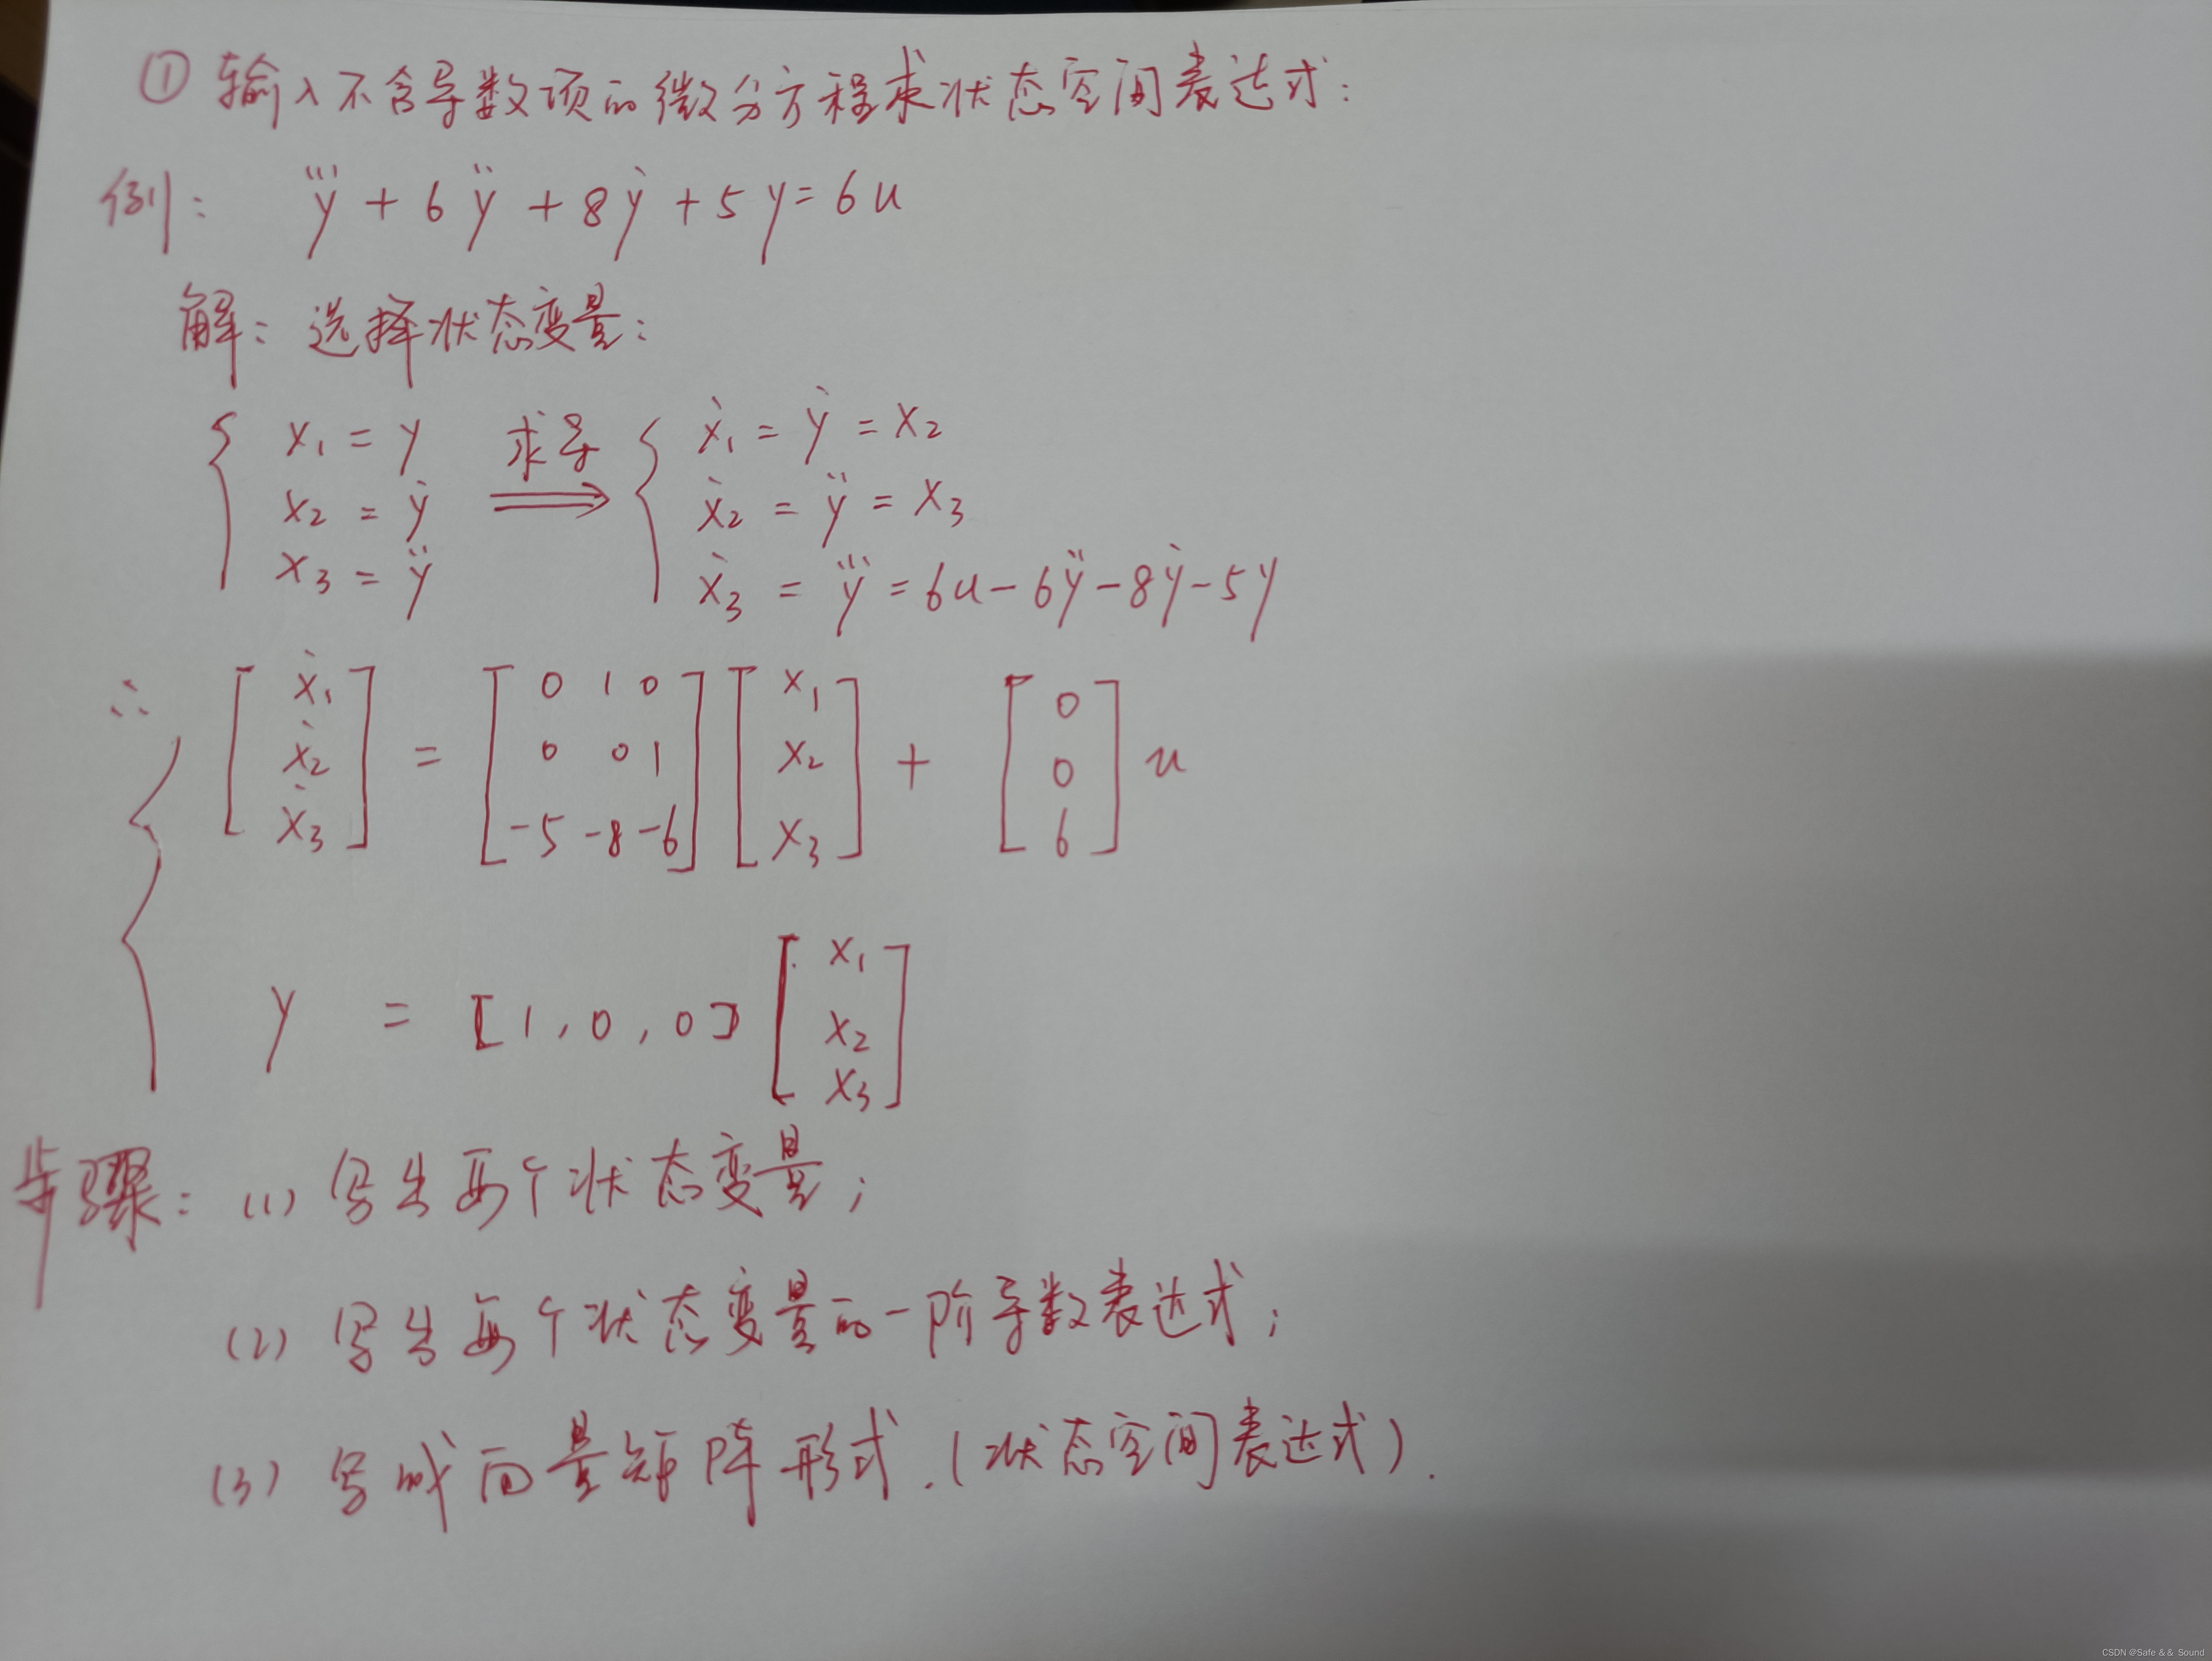 ① 输入不含导数项的微分方程求状态空间表达式：
例： y⃛ + 6ÿ + 8ẏ + 5y = 6u
解：选择状态变量：
{ x₁ = y 求导 ⟹ { ẋ₁ = ẏ = x₂
x₂ = ẏ ẋ₂ = ÿ = x₃
x₃ = ÿ ẋ₃ = y⃛ = 6u - 6ÿ - 8ẏ - 5y
∴ { [ẋ₁ ẋ₂ ẋ₃] = [0 1 0; 0 0 1; -5 -8 -6] [x₁ x₂ x₃] + [0 0 6] u
y = [1, 0, 0] [x₁ x₂ x₃]
步骤：(1) 写出每个状态变量；
(2) 写出每个状态变量的一阶导数表达式；
(3) 写成向量矩阵形式.(状态空间表达式).
CSDN @Safe && Sound